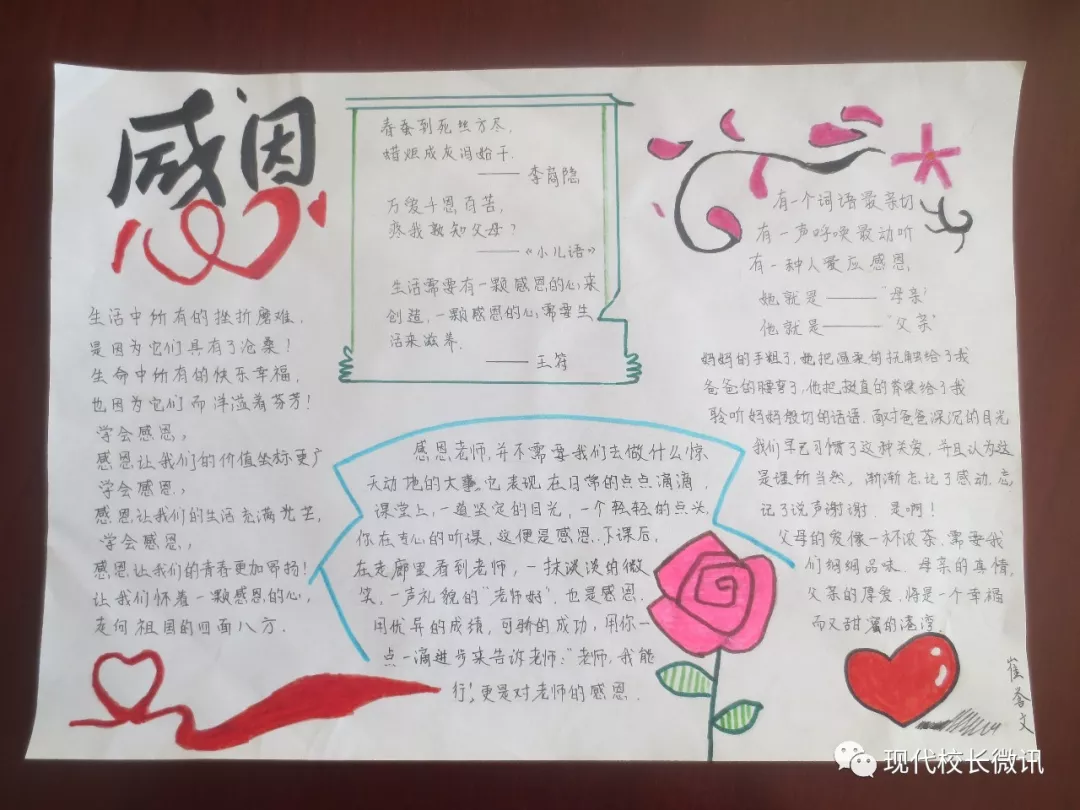 感恩
生活中所有的挫折磨难,
是因为它们具有了沧桑!
生命中所有的快乐幸福,
也因为它们而洋溢着芬芳!
学会感恩,
感恩让我们的价值坐标更广
学会感恩,
感恩让我们的生活充满光芒,
学会感恩,
感恩让我们的青春更加昂扬!
让我们怀着一颗感恩的心,
走向祖国的四面八方.
春蚕到死丝方尽,
蜡炬成灰泪始干.
——李商隐
万爱千恩百苦,
疼我孰知父母?
——《小儿语》
生活需要有一颗感恩的心来
创造,一颗感恩的心需要生
活来滋养.
——王符
感恩老师,并不需要我们去做什么惊
天动地的大事,它表现在日常的点点滴滴,
课堂上,一道坚定的目光,一个轻轻的点头,
你在专心的听课,这便是感恩.下课后,
在走廊里看到老师,一抹淡淡的微
笑,一声礼貌的"老师好",也是感恩.
用优异的成绩,可骄的成功,用你一
点一滴进步来告诉老师:"老师,我能
行!更是对老师的感恩.
有一个词语最亲切
有一声呼唤最动听
有一种人爱应感恩
她就是——"母亲"
他就是——"父亲"
妈妈的手粗了,她把温柔的抚触给了我
爸爸的腰弯了,他把挺直的脊梁给了我
聆听妈妈殷切的话语,面对爸爸深沉的目光
我们早已习惯了这种关爱,并且认为这
是理所当然,渐渐忘记了感动,忘
记了说声谢谢.是啊!
父母的爱像一杯浓茶,需要我
们细细品味.母亲的真情,
父亲的厚爱,将是一个幸福
而又甜蜜的港湾.
崔 文
现代校长微讯